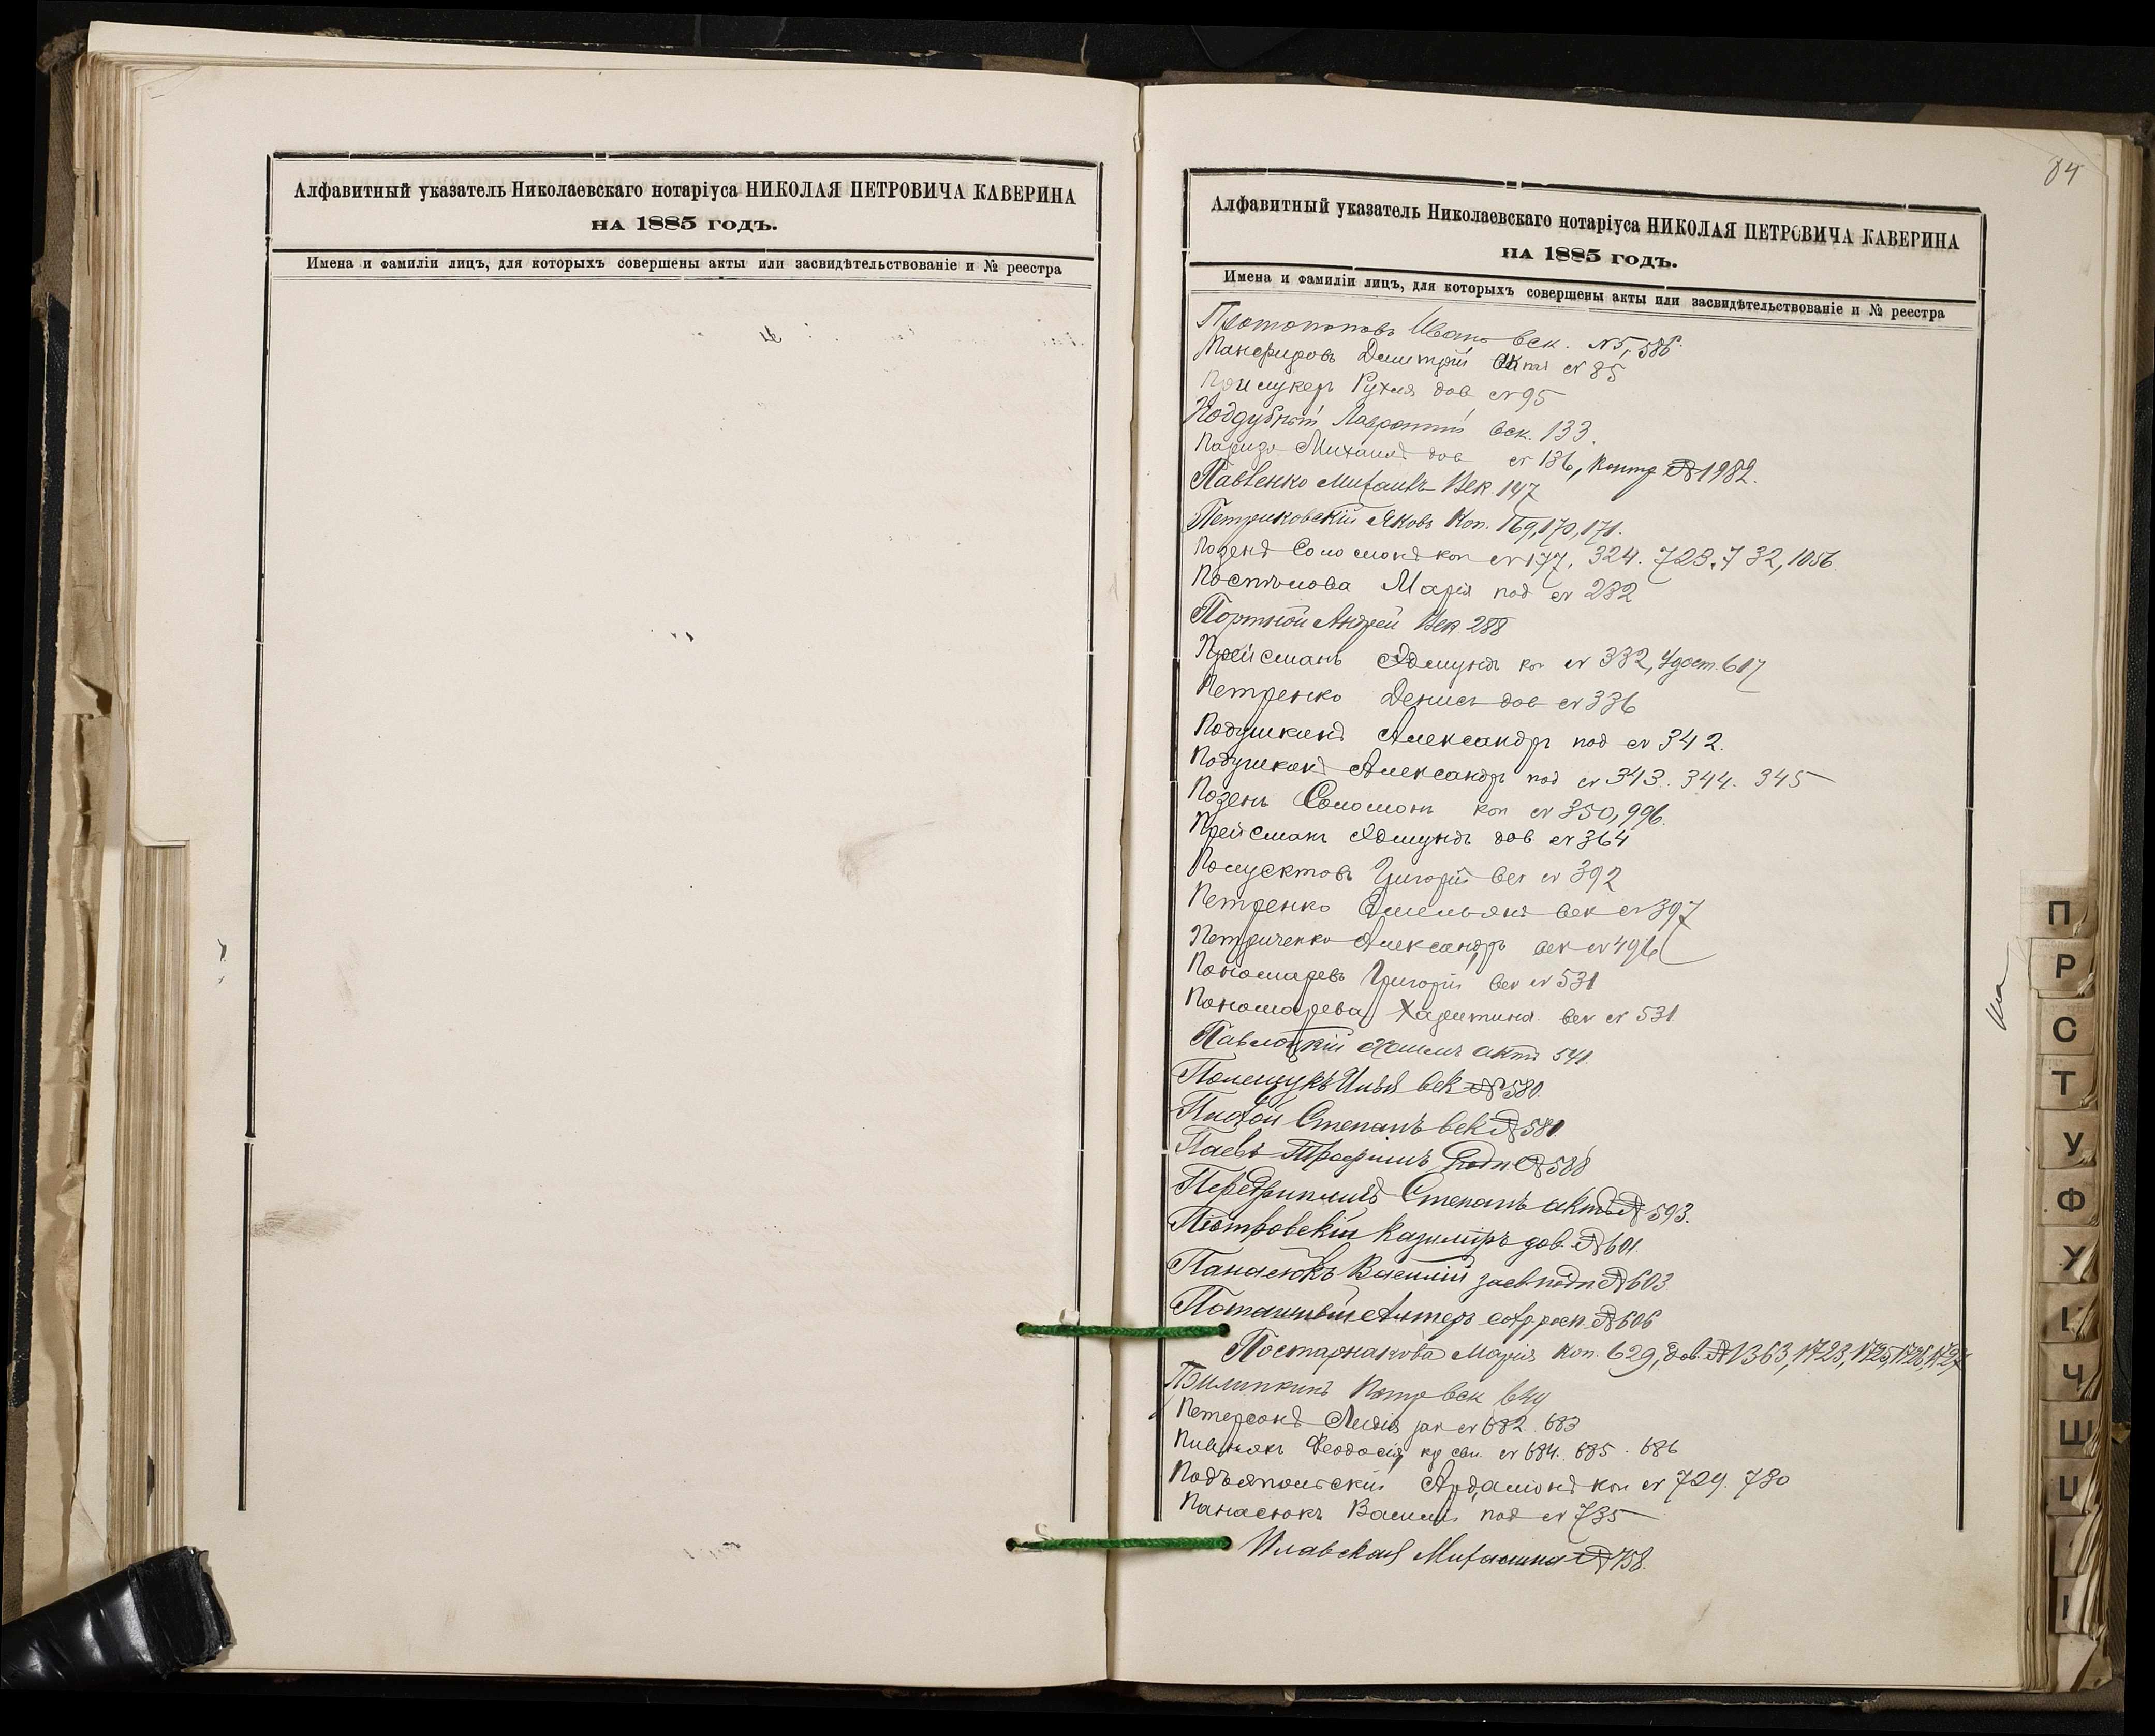 Алфавитный указатель Николаевскаго нотаріуса НИКОЛАЯ ПЕТРОВИЧА КАВЕРИНА
НА 1885 ГОДЪ.
Имена и фамиліи лицъ, для которыхъ совершены акты или засвидѣтельствованіе и № реестра
84
Алфавитный указатель Николаевскаго нотаріуса НИКОЛАЯ ПЕТРОВИЧА КАВЕРИНА
НА 1885 ГОДЪ.
Имена и фамиліи лицъ, для которыхъ совершены акты или засвидѣтельствованіе и № реестра
Протопоповъ Иванъ век. №5, 586.
Панефировъ Дмитрій № 85
Рухля дов №95
Поддубный Лаврентій век. 133.
Михаилъ дов № 136, контр №1982.
Павленко Михаилъ Век. 147
Петриковскій Яковъ Коп. 169, 170, 171.
Позенъ Соломонъ коп №177. 324. 723. 732, 1056.
Постъпова Марія под № 232
Портной Андрей Век. 288
Прейсманъ Эдмундъ коп № 332, Удост. 617
Петренко Денисъ дов №336
Подушкинъ Александръ под № 342.
Подушкинъ Александръ под № 343. 344. 345
Позенъ Соломонъ коп № 350, 996.
Прейсманъ Эдмундъ дов №364
Полуектовъ Григорій век № 392
Петренко Емельянъ век №397
Петриченко Александръ век №496
Пономаревъ Григорій век № 531
Пономарева Харитина век № 531
Павлоцкій актъ 541.
Полещукъ Илья век №580.
Пихой Степанъ век №581.
Паевъ Трофимъ подп №588
Степанъ актъ № 593.
Піотровскій Казимиръ дов. №601.
Панасюкъ Василій засв подп №603.
Алтеръ №606
Постарнакова Марія Коп. 629, дов. №1363, 1723, 1725, 1726, 1727
Пилипкинъ Петръ век 644
Петерсонъ Лидія № 682. 683
Феодосія № 684. 685. 686
Подъяпольскій коп № 729. 730
Панасюкъ Василій под № 735
Плавская Михалина №758.
П
Р
С
Т
У
Ф
Х
Ц
Ч
Ш